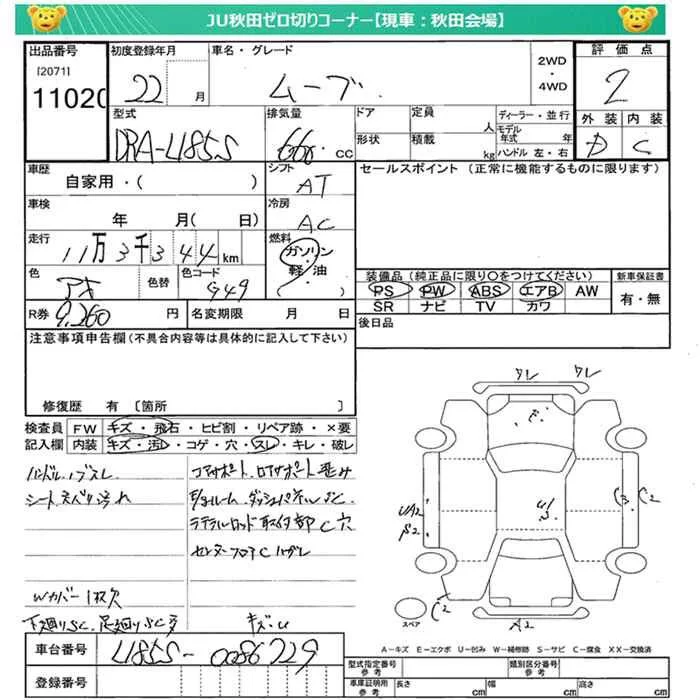 JU秋田ゼロ切りコーナー【現車：秋田会場】
出品番号 初度登録年月 車名・グレード 2WD・4WD 評価点
[2071]
11020 22 月 ムーブ 2
型式 排気量 ドア 定員 人 ディーラー・並行 外装 内装
DRA-L185S 660 cc 形状 積載 kg モデル年式 年 ハンドル 左・右 D C
車歴 自家用・( ) シフト AT セールスポイント (正常に機能するものに限ります)
車検 年 月( 日) 冷房 AC
走行 11万3千344km 燃料 ガソリン・軽・油 ( )
色 アオ 色替 色コード G49
装備品(純正品に限り○をつけてください) 新車保証書
PS PW ABS エアB AW 有・無
SR ナビ TV カワ
R券 9,260 円 名変期限 月 日 後日品
注意事項申告欄(不具合内容等は具体的に記入して下さい)
修復歴 有〔箇所 〕
検査員 FW キズ・飛石・ヒビ割・リペア跡・×要
記入欄 内装 キズ・汚レ・コゲ・穴・スレ・キレ・破レ
ハンドル、ノブスレ コアサポート、ロアサポート歪み
シートスベリ汚れ ダッシュパネル
ラテラルロッド取付部C穴
センターフロアCハガレ
Wカバー1枚欠
下廻りSC、足廻りSC多 キズ、U
ワレ ワレ
F
UA2
S2
U3
C3 C2
スペア C2
A2
A－キズ E－エクボ U－凹み W－補修跡 S－サビ C－腐食 XX－交換済
車台番号 L185S-0086729
登録番号
型式指定番号 参考 類別区分番号 参考
車庫証明用 参考 長さ cm 幅 cm 高さ cm